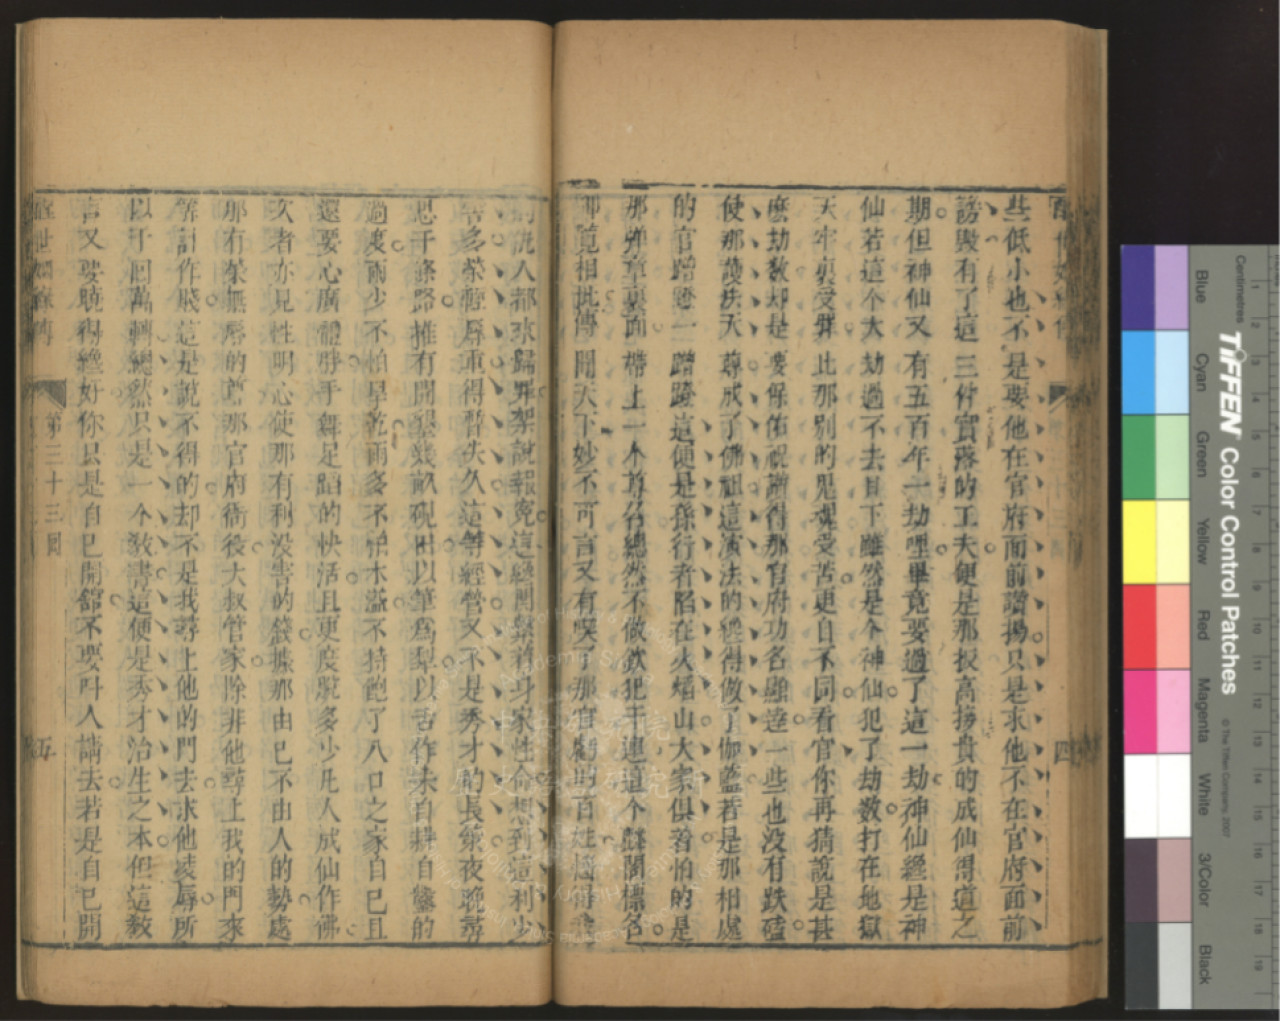 些低小也不是要他在官府面前讚揚只是求他不在官府面前
謗毀有了這三件實落的工夫便是那扳高接貴的成仙得道之
期但神仙又有五百年一劫哩畢竟要過了這一劫神仙纔是神
仙若這个大劫過不去目下雖然是个神仙犯了劫數打在地獄
天牢裏受罪比那別的鬼魂受苦更自不同看官你再猜說是甚
麽劫數却是要保佑祝讚得那官府功名顯達一些也没有跌磕
使那護法天尊成了佛祖這演法的纔得做了伽藍若是那相處
的官蹭蹬一蹭蹬這便是孫行者陷在火焰山大家俱着怕的是
那彈章裏面帶上一个尊名總然不做欽犯干連這个麯閣標名
御覽相批傳聞天下妙不可言又有喫了那官虧的百姓
人都來歸罪架說報寃這纔關繫着身家性命想到這利少
害多榮輕辱重得暫失久這等經營又不是秀才的長策夜晚尋
思千條路惟有開墾幾畝硯田以筆爲犁以舌作耒自耕自鑿的
過度雨少不怕旱乾雨多不怕水溢不特飽了八口之家自己且
還要心廣體胖手舞足蹈的快活且更度脫多少凡人成仙作佛
次者亦見性明心使那有利没害的錢據那由己不由人的勢處
那有榮無辱的尊那官府衙役大叔管家除非他尋上我的門來
算計作賤這是說不得的却不是我尋上他的門去求他凌辱所
以千回萬轉總然只是一个敎書這便是秀才治生之本但這敎
書又要曉得纔好你只是自己開舘不要叫人請去若是自己開
醒世姻緣傳
第三十三回
五
醒世姻緣傳
四